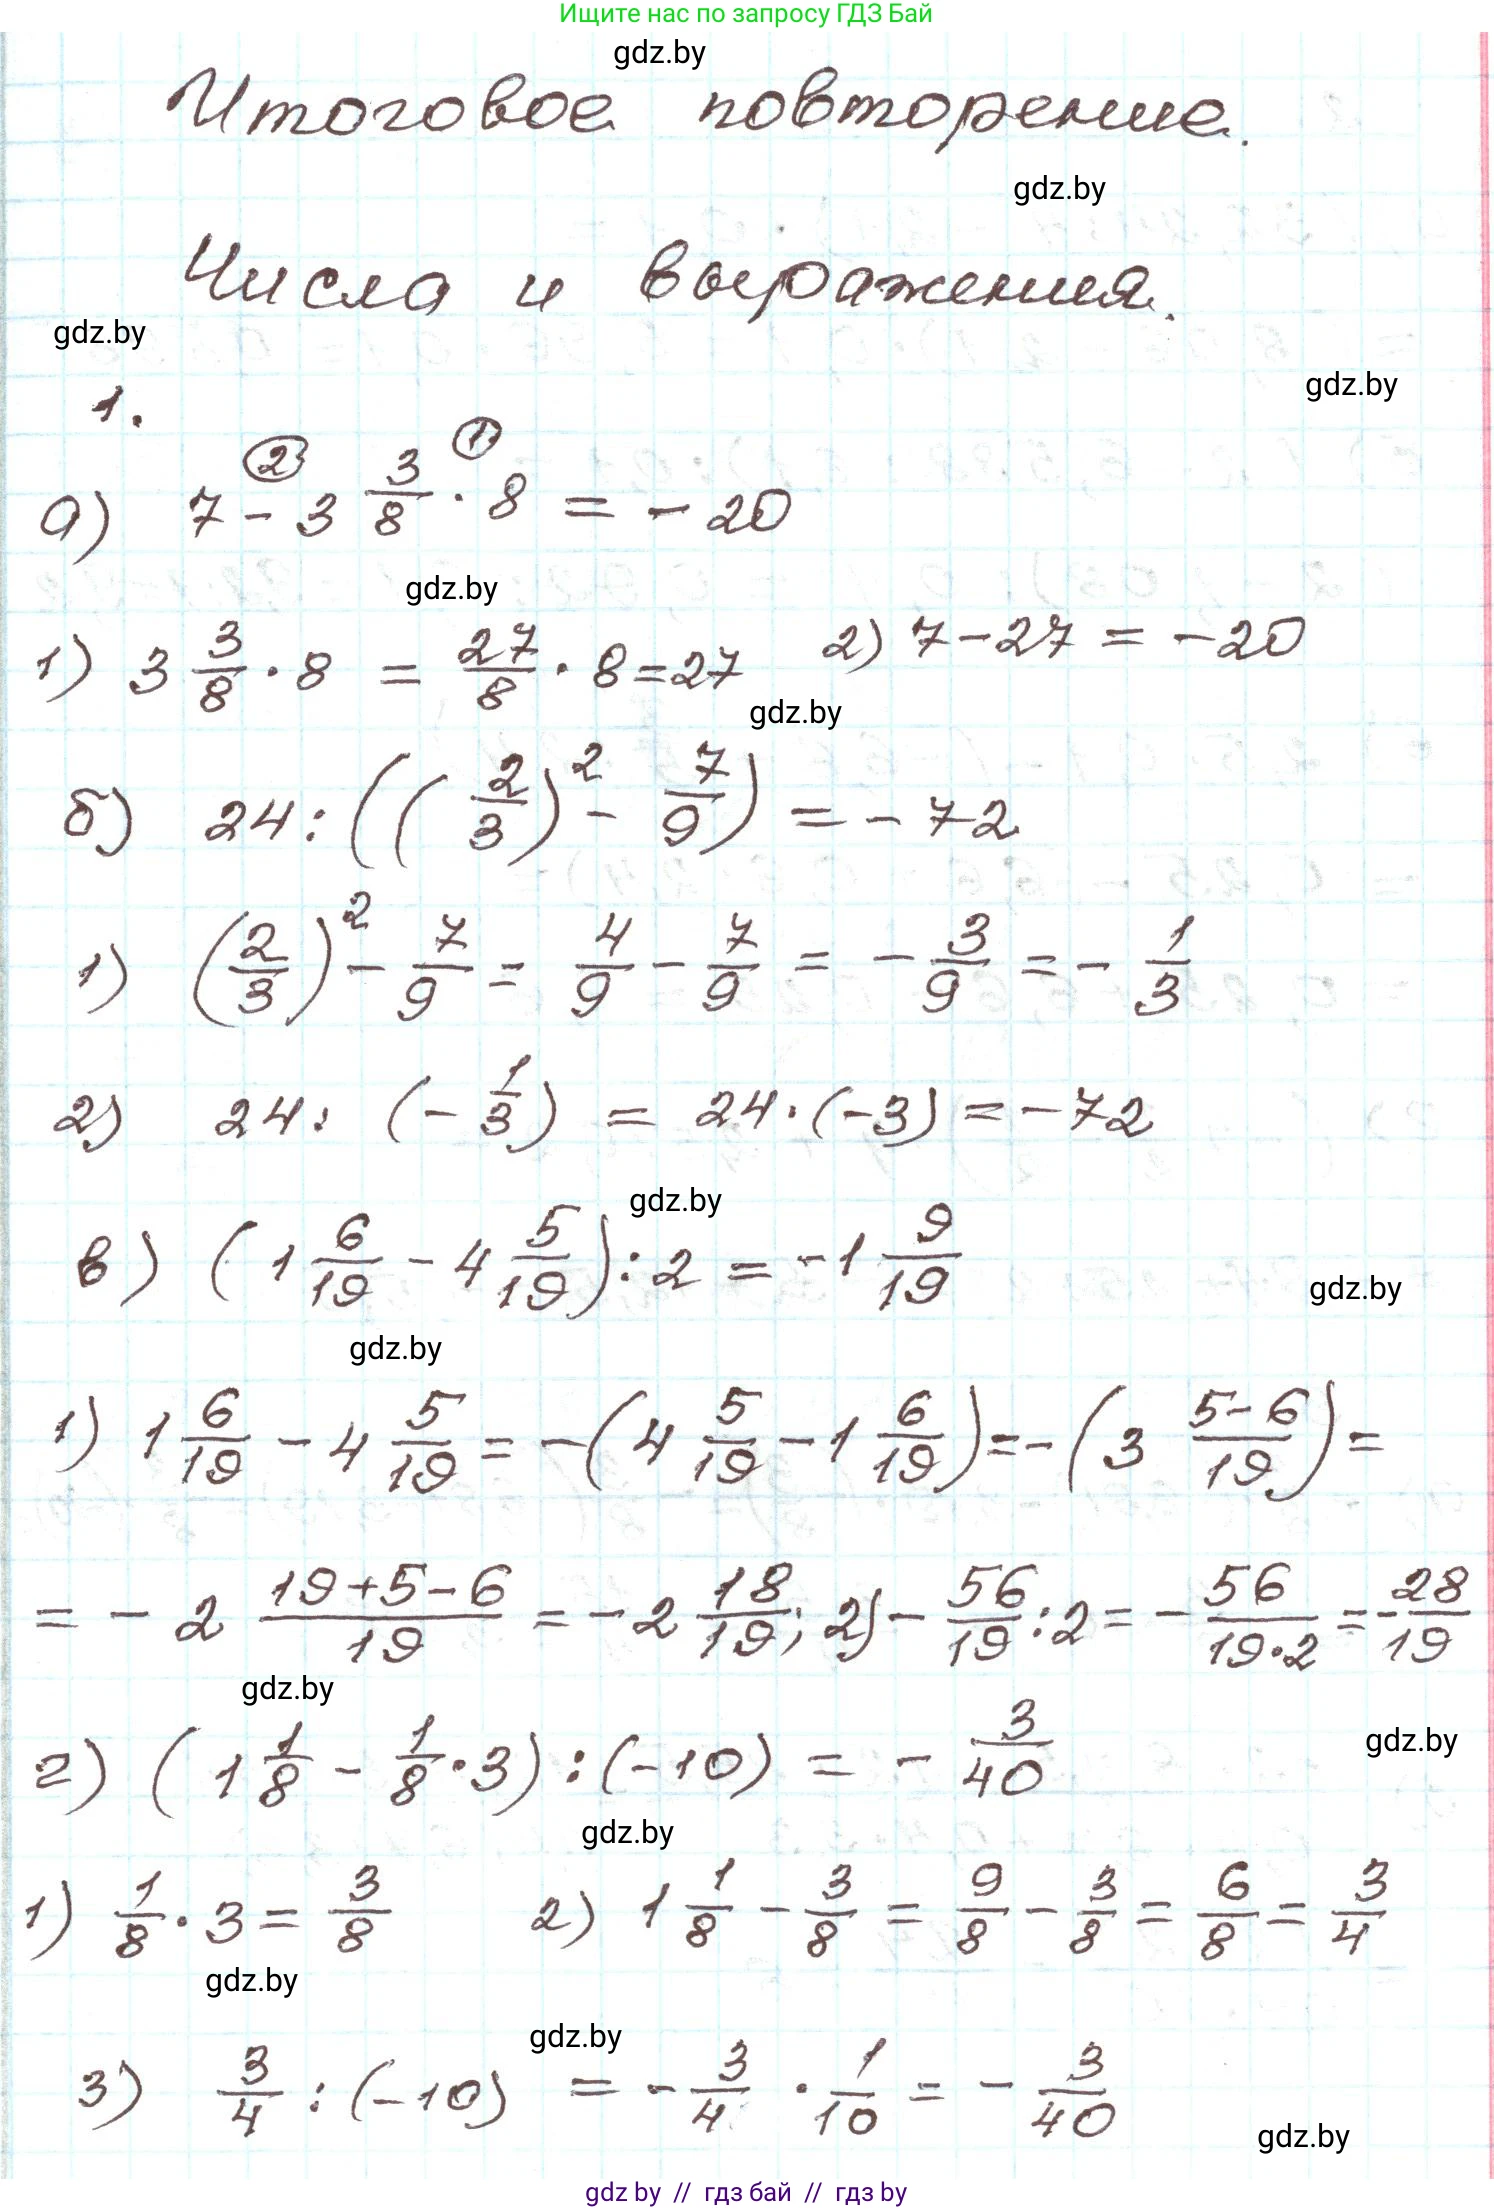 Ищите нас по запросу ГДЗ Бай
gdz.by
Итоговое повторение.
gdz.by
Числа и выражения.
gdz.by
gdz.by
1.
② ①
а) 7 - 3 3/8 · 8 = - 20
gdz.by
1) 3 3/8 · 8 = 27/8 · 8 = 27 2) 7 - 27 = - 20
gdz.by
б) 24 : ((2/3)² - 7/9) = - 72
1) (2/3)² - 7/9 = 4/9 - 7/9 = - 3/9 = - 1/3
2) 24 : (- 1/3) = 24 · (-3) = - 72
gdz.by
в) (1 6/19 - 4 5/19) : 2 = - 1 9/19
gdz.by
gdz.by
1) 1 6/19 - 4 5/19 = - (4 5/19 - 1 6/19) = - (3 (5-6)/19) =
= - 2 (19+5-6)/19 = - 2 18/19; 2) - 56/19 : 2 = - 56/(19·2) = - 28/19
gdz.by
gdz.by
г) (1 1/8 - 1/8 · 3) : (-10) = - 3/40
gdz.by
1) 1/8 · 3 = 3/8 2) 1 1/8 - 3/8 = 9/8 - 3/8 = 6/8 = 3/4
gdz.by
gdz.by
3) 3/4 : (-10) = - 3/4 · 1/10 = - 3/40
gdz.by
gdz by // гдз бай // гдз by